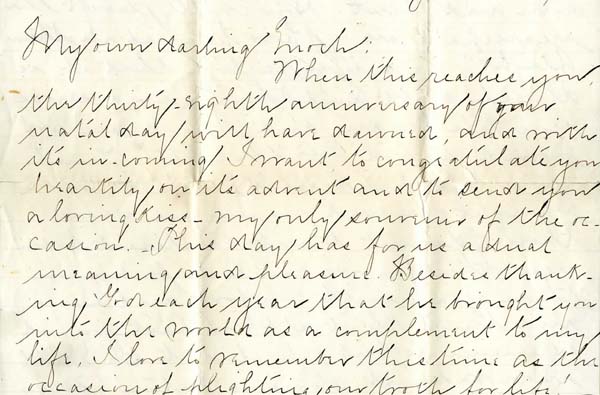 My own darling Enoch:
When this reaches you,
the thirty-eighth anniversary of your
natal day will have dawned, and with
its in-coming I want to congratulate you
heartily on its advent and to send you
a loving kiss - my only souvenir of the oc-
casion. - This day has for us a dual
meaning and pleasure. Besides thank-
ing God each year that he brought you
into the world as a complement to my
life, I love to remember this time as the
occasion of plighting our troth for life! -